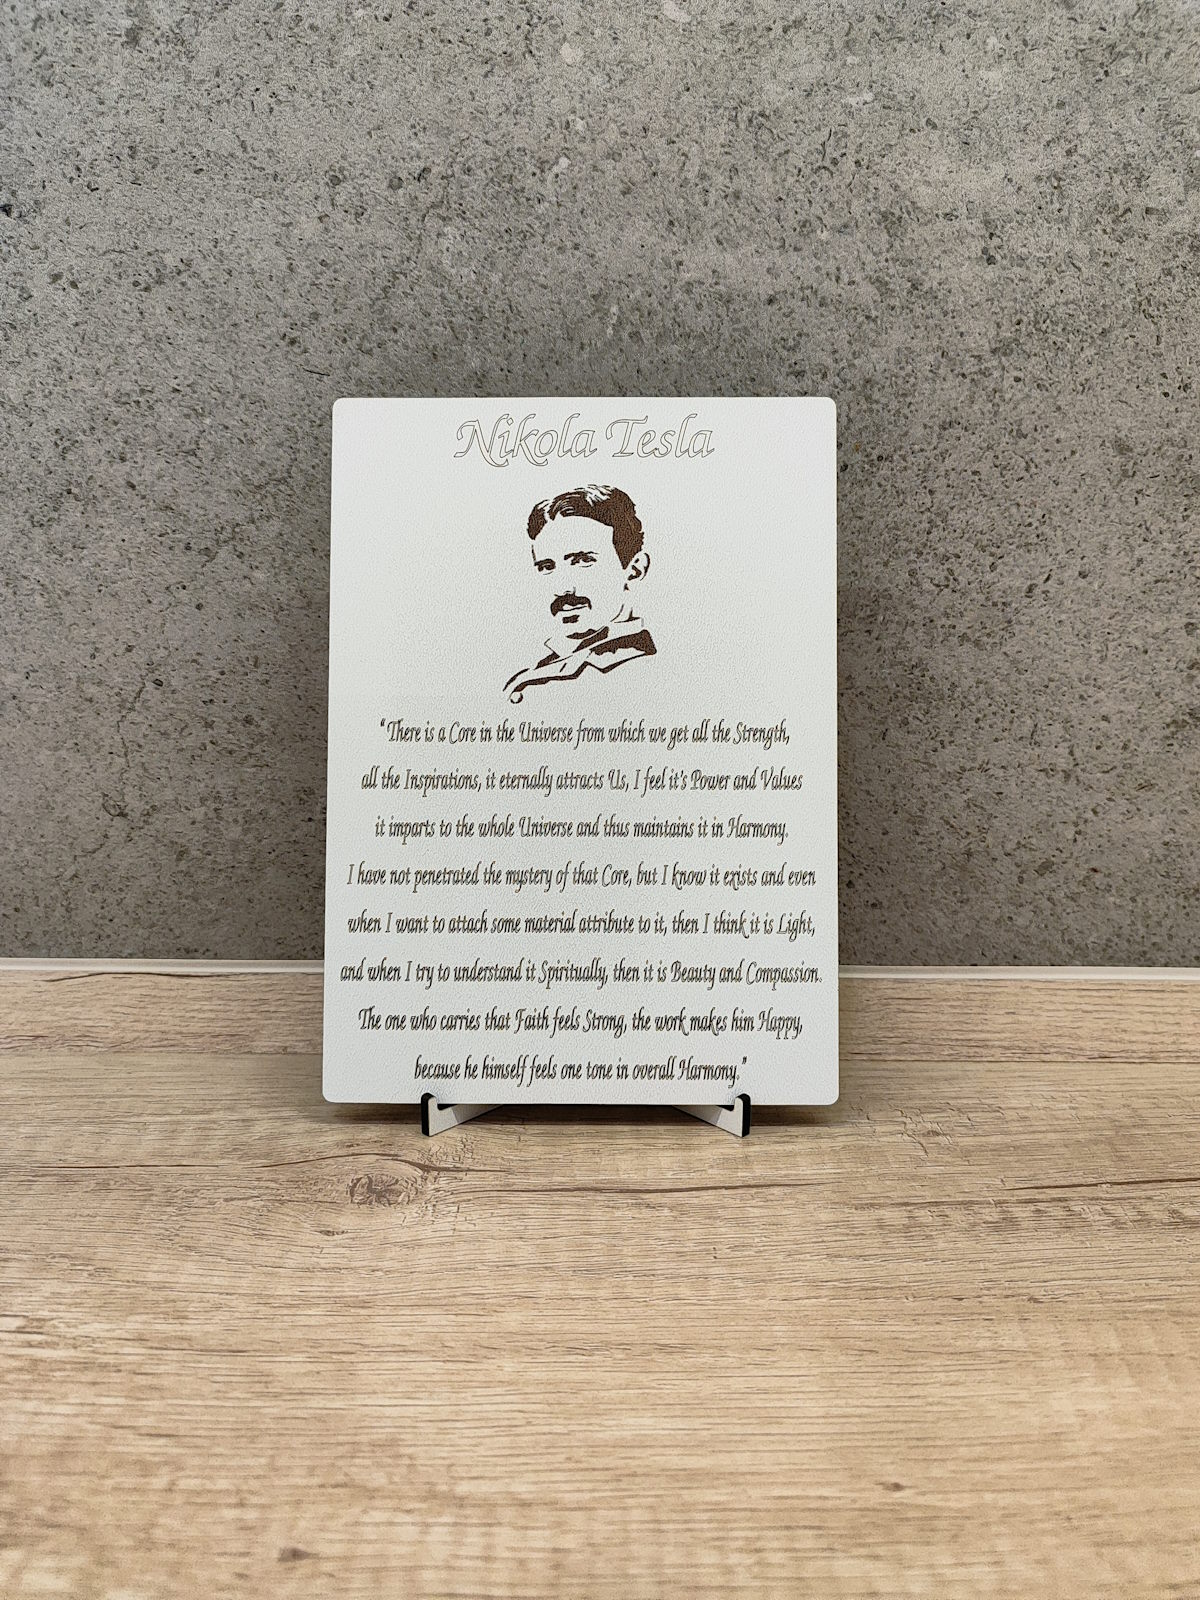 Nikola Tesla
“There is a Core in the Universe from which we get all the Strength,
all the Inspirations, it eternally attracts Us, I feel it's Power and Values
it imparts to the whole Universe and thus maintains it in Harmony.
I have not penetrated the mystery of that Core, but I know it exists and even
when I want to attach some material attribute to it, then I think it is Light,
and when I try to understand it Spiritually, then it is Beauty and Compassion.
The one who carries that Faith feels Strong, the work makes him Happy,
because he himself feels one tone in overall Harmony.”